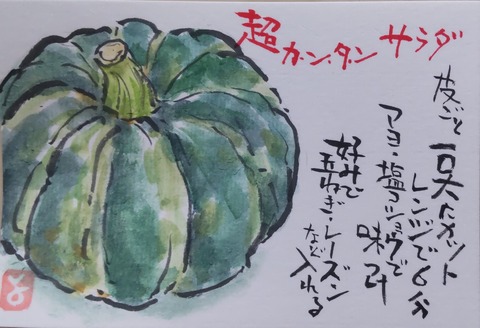 超カンタンサラダ
皮ごと一口大にカット
レンジで6分
マヨ・塩コショウで
味つけ
好みで
玉ねぎ・レーズン
など入れる